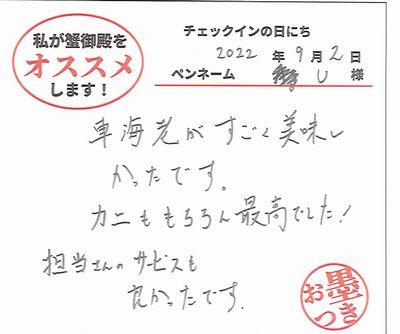 私が蟹御殿を
オススメ
します！
チェックインの日にち
2022 年 9 月 2 日
ペンネーム U 様
車海老がすごく美味し
かったです。
カニももちろん最高でした！
担当さんのサービスも
良かったです。
お墨つき